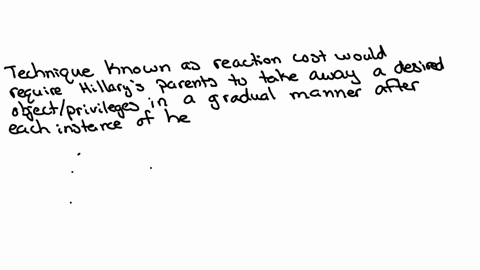 Technique Known as reaction cost would
require Hillary's parents to take away a desired
object/privileges in a gradual manner after
each instance of he